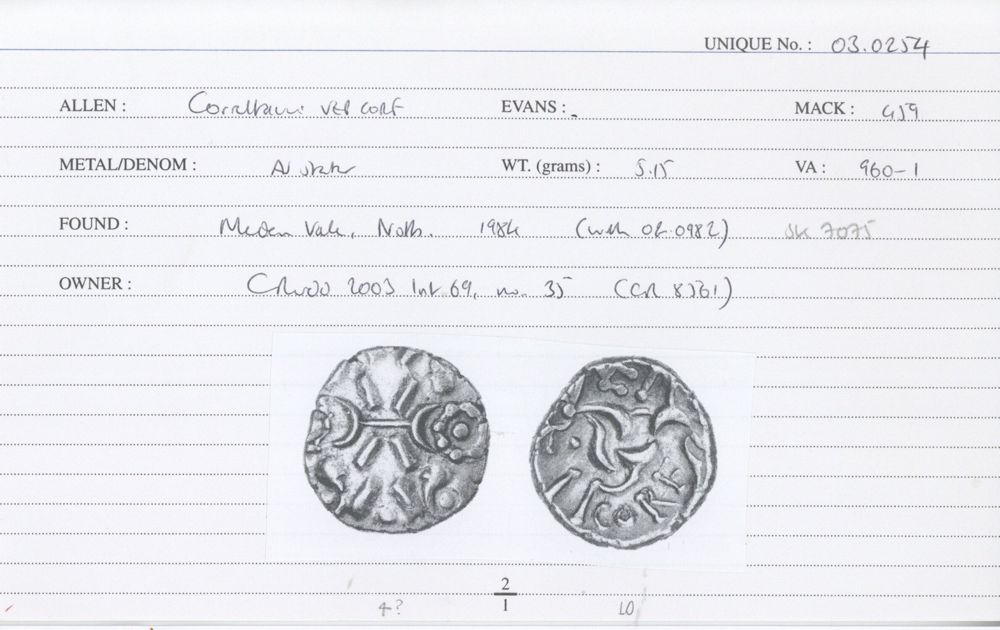 UNIQUE No. : 03.0254
ALLEN : Corieltauvi VEP CORF EVANS : - MACK : 459
METAL/DENOM : AV stater WT. (grams) : 5.15 VA : 960-1
FOUND : Meden Vale, Notts. 1984 (with 02.0982) SK 7075
OWNER : CR 2003 list 69, no. 35 (CR 8361)
CORF
2
4? 1 10